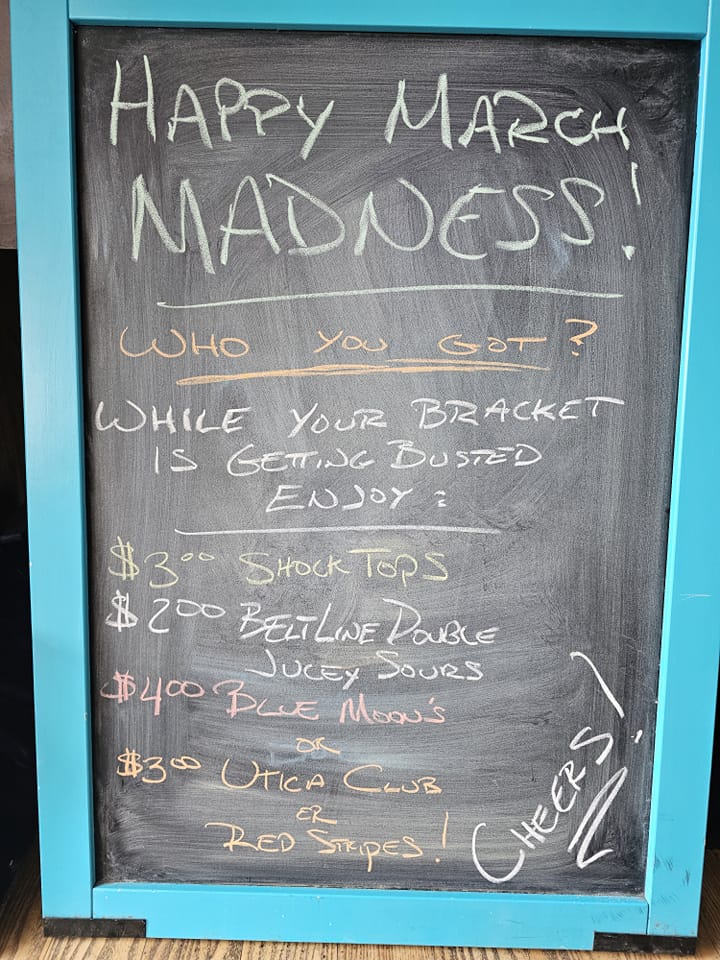 HAPPY MARCH
MADNESS!
WHO YOU GOT?
WHILE YOUR BRACKET
IS GETTING BUSTED
ENJOY:
$300 SHOCK TOPS
$200 BELTLINE DOUBLE
JUCEY SOURS
$400 BLUE MOON'S
OR
$300 UTICA CLUB
ER
RED STRIPES!
CHEERS!